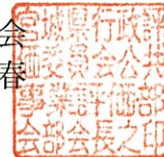 会
春
宮城県行政評
価委員会公共
事業評価部
会部会長之印